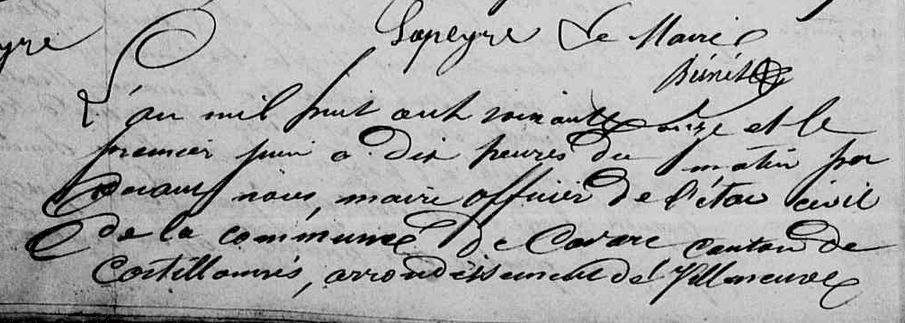 yre Lapeyre Le Maire
Bénét
L'an mil huit cent soixante onze et le
premier juin a dix heures du matin par
devant nous, maire officier de l'état civil
de la commune de Cavarc canton de
Castillonnés, arrondissement de Villeneuve